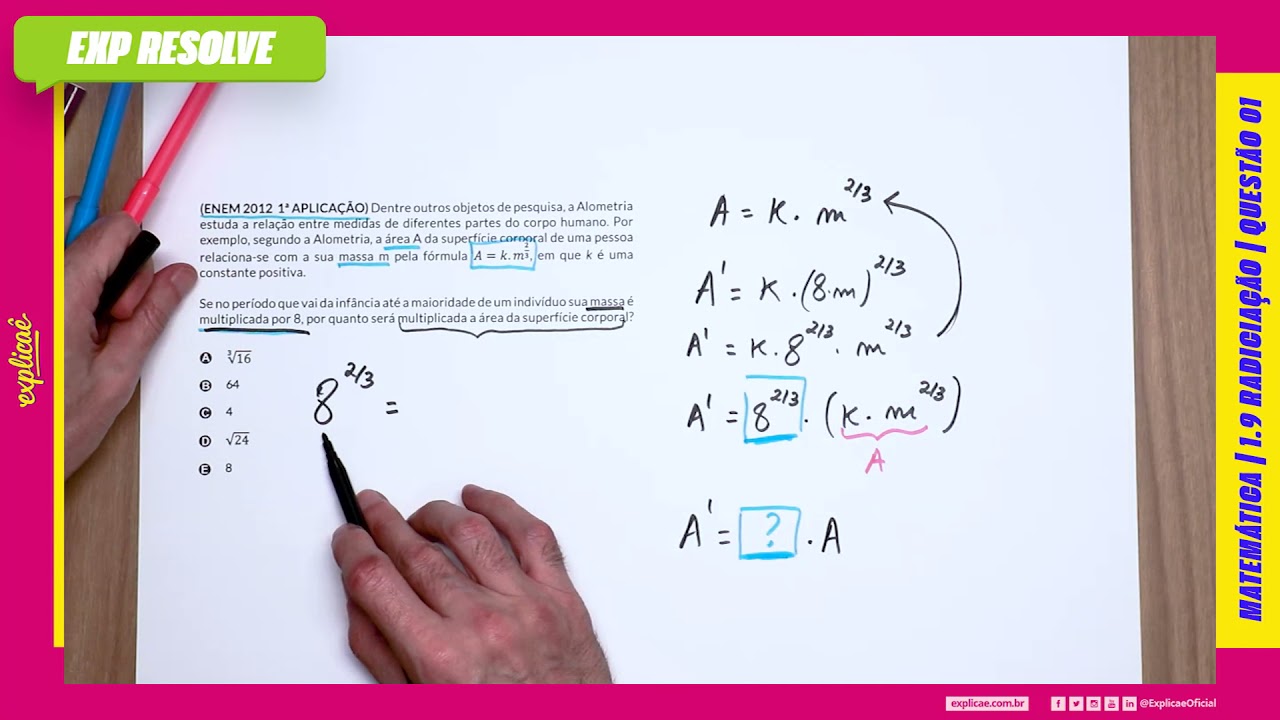 EXP RESOLVE
explicaê
(ENEM 2012 1ª APLICAÇÃO) Dentre outros objetos de pesquisa, a Alometria
estuda a relação entre medidas de diferentes partes do corpo humano. Por
exemplo, segundo a Alometria, a área A da superfície corporal de uma pessoa
relaciona-se com a sua massa m pela fórmula A = k.m^{2/3}, em que k é uma
constante positiva.
Se no período que vai da infância até a maioridade de um indivíduo sua massa é
multiplicada por 8, por quanto será multiplicada a área da superfície corporal?
A ∛16
B 64
C 4
D √24
E 8
8^{2/3} =
A = K . m^{2/3}
A' = K . (8.m)^{2/3}
A' = K . 8^{2/3} . m^{2/3}
A' = 8^{2/3} . (K . m^{2/3})
A
A' = ? . A
MATEMÁTICA | 1.9 RADICIAÇÃO | QUESTÃO 01
explicae.com.br @ExplicaeOficial